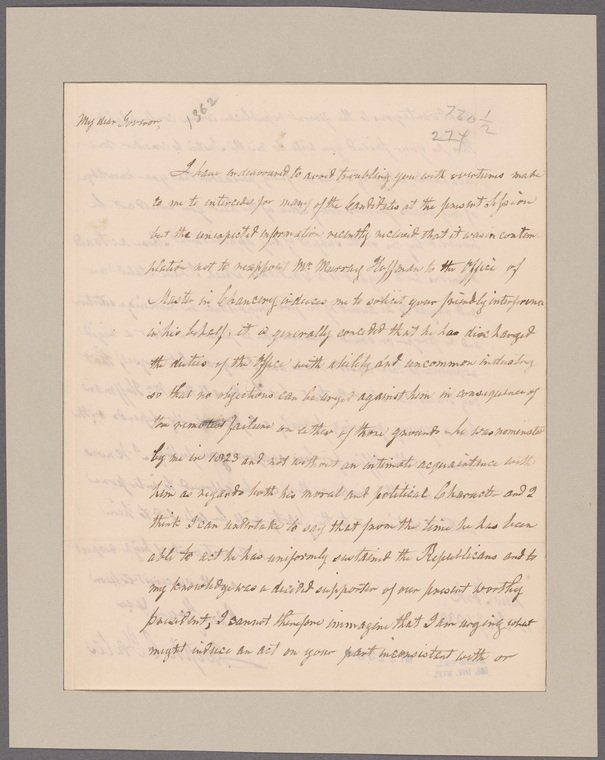 My dear Govrnor,
1362
720 1/2
274
I have indeavoured to avoid troubling you with overtures made
to me to intercede for many of the Candidates at the present Session
but the unexpected information recently recieved that it was in contem
plation not to reappoint Mr Murray Hoffman to the Office of
Master in Chancery induces me to solicit your friendly interference
in his behalf. it is generally conceded that he has discharged
the duties of the Office with ability and uncommon industry
so that no objections can be urged against him in consequence of
the remotest failure on either of those grounds he was nominated
by me in 1823 and not without an intimate acquaintance with
him as regards both his moral and political Character and I
think I can undertake to say that from the time he has been
able to act he has uniformly sustained the Republicans and to
my knowledge was a decided supporter of our present worthy
president, I cannot therefore immagine that I am urging what
might induce an act on your part inconsistent with or